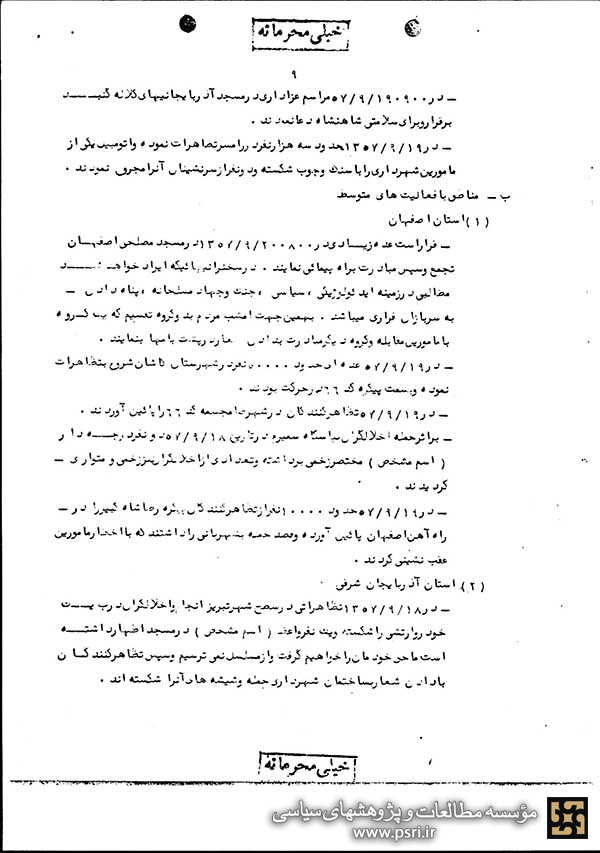 خیلی محرمانه
۹
ـ در ۰۹۰۰ ۵۷/۹/۱۹ مراسم عزاداری در مسجد آذربایجانیهای کلاله گنبـــد
برقرار و برای سلامتی شاهنشاه دعا نمودند .
ـ در ۱۳۵۷/۹/۱۹ حدود سه هزار نفر در رامسر تظاهرات نموده و اتومبیل یکی از
مامورین شهرداری را با سنگ و چوب شکسته و دو نفر از سرنشینان آنرا مجروح نمودند .
ب ـ مناطق با فعالیت های متوسط
(۱) استان اصفهان
ـ قرار است عده زیادی در ۰۸۰۰ ۱۳۵۷/۹/۲۰ در مسجد مصلحی اصفهــان
تجمع و سپس مبادرت براه پیمائی نمایند . در سخنرانیهائیکه ایراد خواهد شـــد
مطالبی در زمینه ایدئولوژیکی ، سیاسی ، جنگ و جهاد مسلحانه ، پناه دادن ـ
به سربازان فراری میباشد . بهمین جهت امشب مردم بدو گروه تقسیم که یک گروه
با مامورین مقابله و گروه دیگر مبادرت به
ـ در ۵۷/۹/۱۹ عده ای حدود نفر در شهرستان کاشان شروع بتظاهرات
نموده و بسمت پیکره کد ۶۶ در حرکت بودند .
ـ در ۵۷/۹/۱۹ تظاهرکنندگان در شهرضا مجسمه کد ۶۶ را پائین آوردند .
ـ براثر حمله اخلالگران به پاسگاه سمیرم در تاریخ ۵۷/۹/۱۸ دو نفر درجــه دار
( اسم مشخص ) مختصر زخمی برداشته و تعدادی از اخلالگران نیز زخمی و متواری ـ
گردیدند .
ـ در ۵۷/۹/۱۹ حدود ۱۰۰۰۰ نفر از تظاهرکنندگان پیکره رضا شاه کبیر را در ـ
راه آهن اصفهان پائین آورده و قصد حمله بشهربانی را داشتند که با اخطار مامورین
عقب نشینی کردند .
(۲) استان آذربایجان شرقی
ـ در ۱۳۵۷/۹/۱۸ تظاهراتی در سطح شهر تبریز انجام و اخلالگران درب یـــک
خودرو ارتشی را شکسته و یک نفر واعظ ( اسم مشخص ) در مسجد اظهار داشتـــه
است ما حق خودمان را خواهیم گرفت و از مسلسل نمی ترسیم و سپس تظاهرکننــدگــان
با دادن شعار بساختمان شهرداری حمله و شیشه های آنرا شکسته اند .
خیلی محرمانه
مؤسسه مطالعات و پژوهشهای سیاسی
www.psri.ir